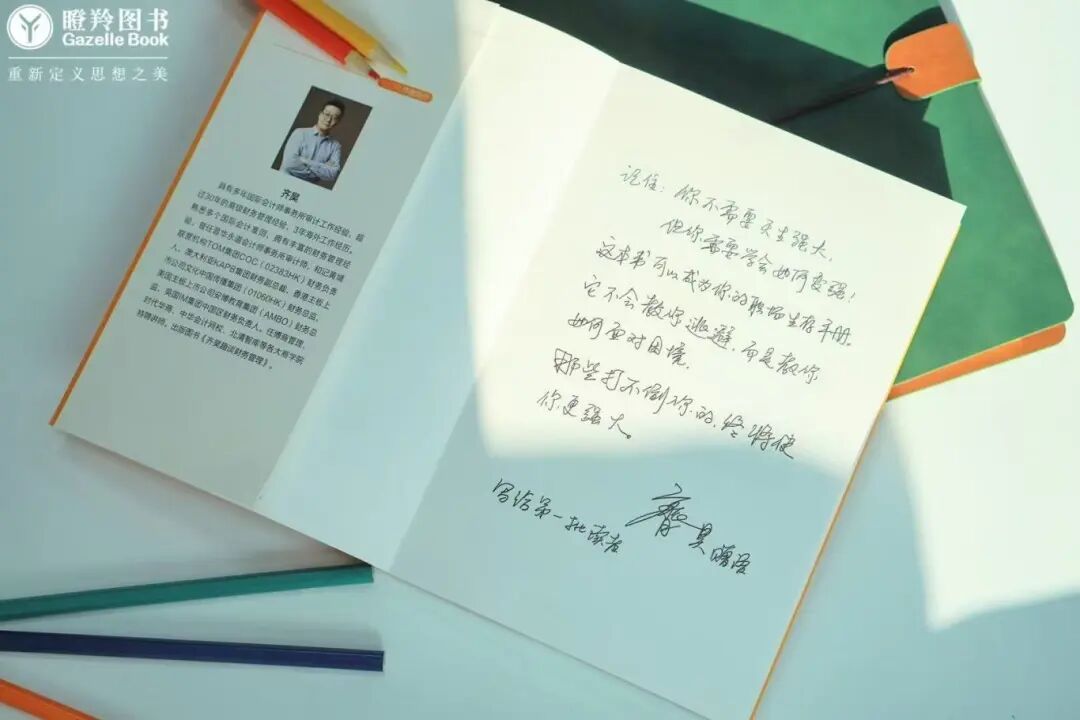 瞪羚图书
Gazelle Book
重新定义思想之美
齐昊
具有多年国际会计师事务所审计工作经验，超
过30年的高级财务管理经验，3年海外工作经历。
熟悉多个国际会计准则，拥有丰富的财务管理经
验。曾任普华永道会计师事务所审计师，和记黄埔
联营机构TOM集团COC（02383HK）财务负责
人、澳大利亚KAPB集团财务副总裁、香港主板上
市公司文化中国传播集团（01060HK）财务总监、
美国主板上市公司安博教育集团（AMBO）财务总
监、英国IM集团中国区财务负责人。任博商管理、
时代华商、中华会计网校、北清智库等各大商学院
特聘讲师，出版图书《齐昊趣谈财务管理》。
记住：你不需要天生强大，
但你需要学会如何变强！
这本书可以成为你的职场生存手册。
它不会教你逃避，而是教你
如何面对困境。
那些打不倒你的，终将使
你更强大。
写给第一批读者
齐昊